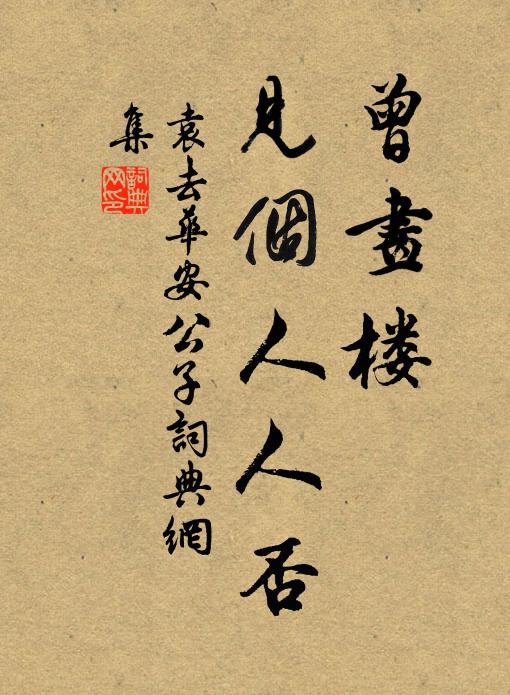 曾畫楼
見個人人否
袁去華安公子詞典網
集
詞典網印